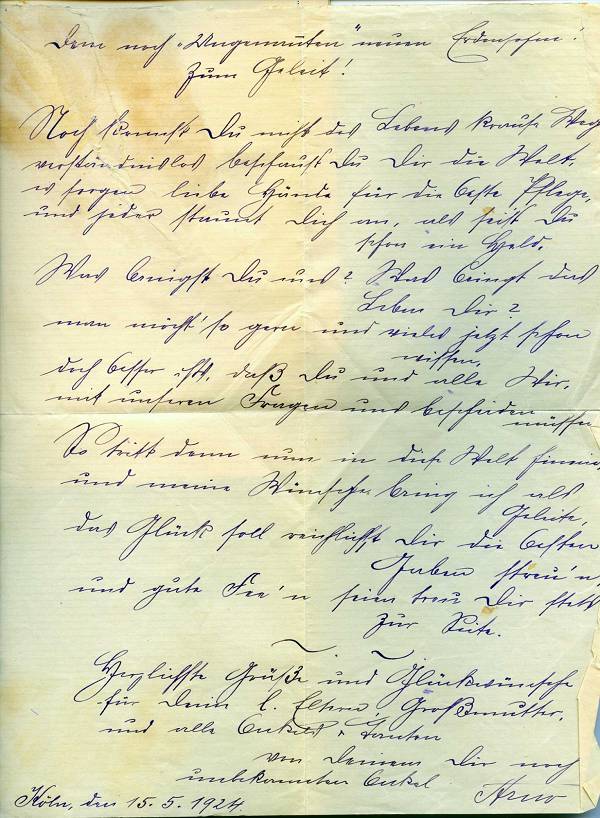 Dem noch „Ungenannten" neuen Erdensohne!
Zum Geleit!
Noch kennst Du nicht des Lebens krause Weg
verständnislos beschaust Du Dir die Welt.
es sorgen liebe Hände für die beste Pflege,
und jeder staunt Dich an, als seist Du
schon ein Held.
Was bringst Du uns? Was bringt das
Leben Dir?
man möcht' so gern und vieles jetzt schon
wissen,
doch besser ists, daß Du und alle Wir,
mit unseren Fragen uns bescheiden
müssen
So tritt denn nun in diese Welt hinein,
und meine Wünsche bring ich als
Geleite,
das Glück soll reichlichst Dir die besten
Gaben streu'n,
und gute Fee'n seien treu Dir stets
zur Seite.
Herzlichste Grüße und Glückwünsche
für Deine l. Eltern, Großmutter,
und alle Onkels u Tanten
von Deinem Dir noch
unbekannten Onkel
Arno
Köln, den 15.5.1924.